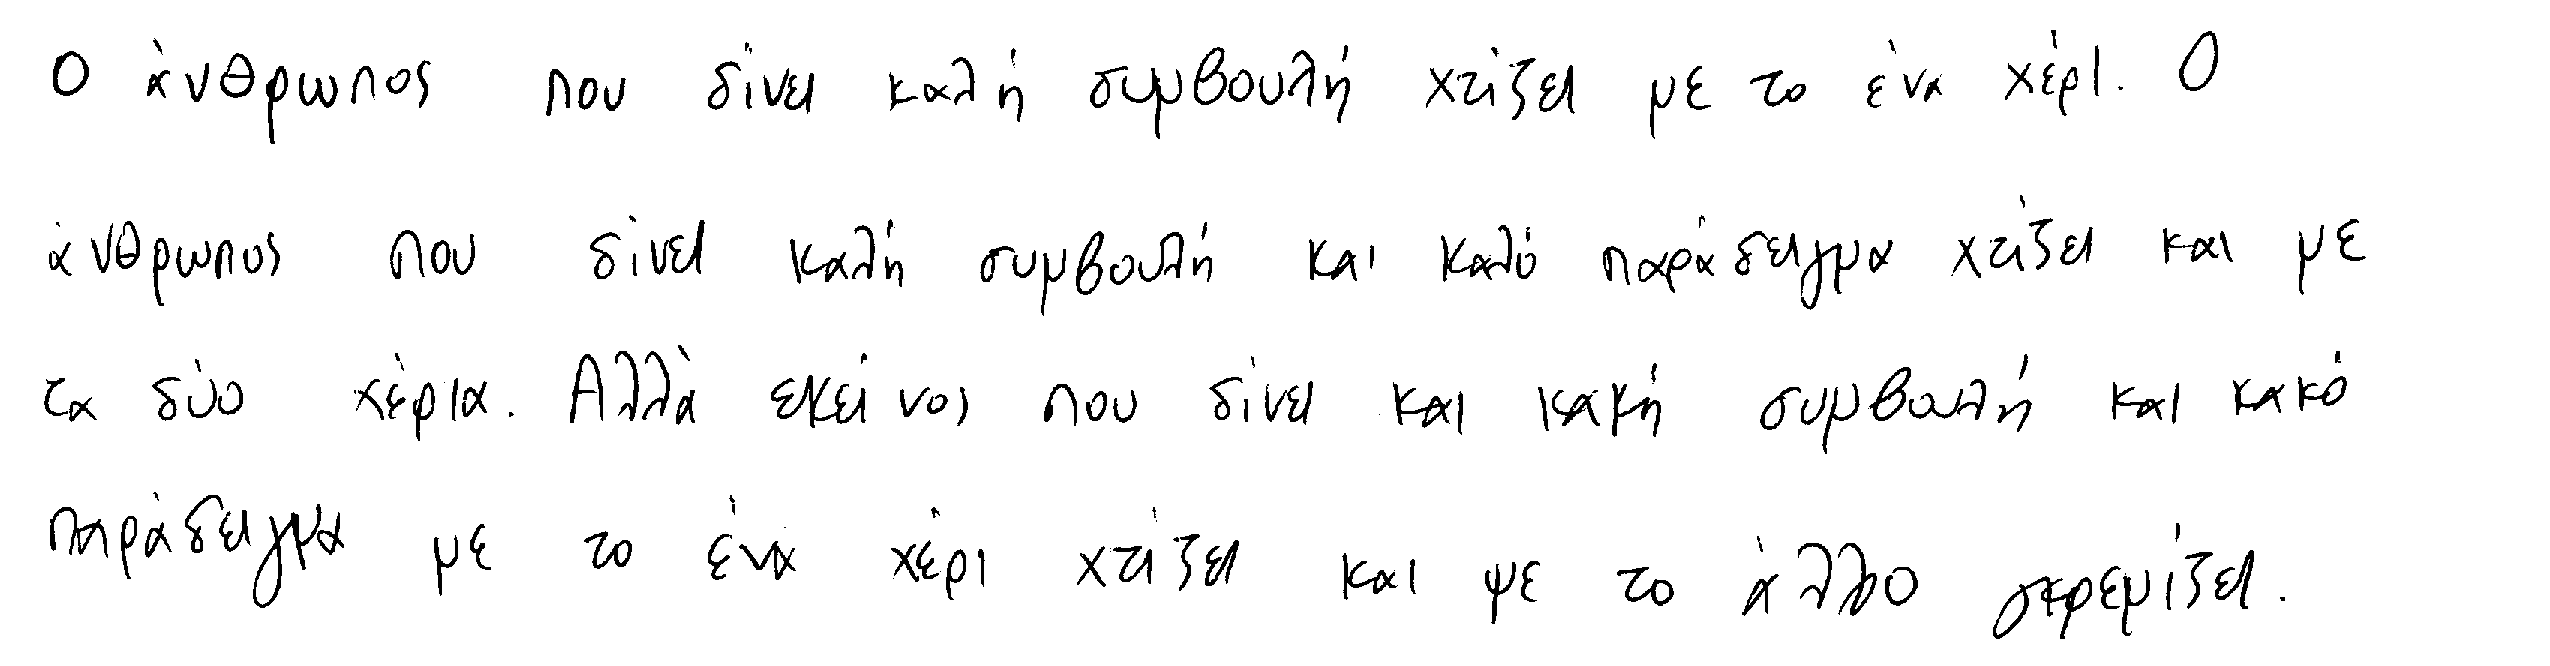 Ο άνθρωπος που δίνει καλή συμβουλή χτίζει με το ένα χέρι. Ο
άνθρωπος που δίνει καλή συμβουλή και καλό παράδειγμα χτίζει και με
τα δύο χέρια. Αλλά εκείνος που δίνει και κακή συμβουλή και κακό
παράδειγμα με το ένα χέρι χτίζει και με το άλλο γκρεμίζει.